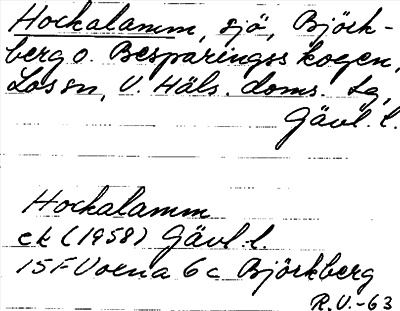 Hockalamm, sjö, Björk-
berg o. Besparingsskogen,
Los sn, V. Häls. doms. lg,
Gävl. l.
Hockalamm
ek (1958) Gävl. l.
15F Voxna 6c Björkberg
R.V.-63